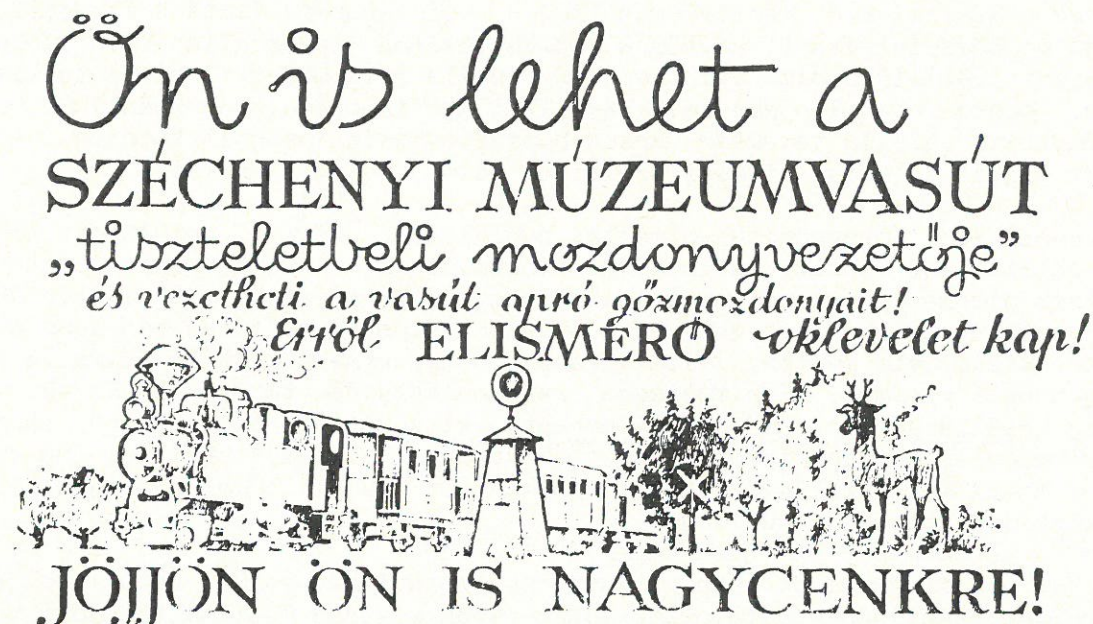 Ön is lehet a
SZÉCHENYI MÚZEUMVASÚT
„tiszteletbeli mozdonyvezetője”
és vezetheti a vasút apró gőzmozdonyait!
Erről ELISMERŐ oklevelet kap!
JÖJJÖN ÖN IS NAGYCENKRE!